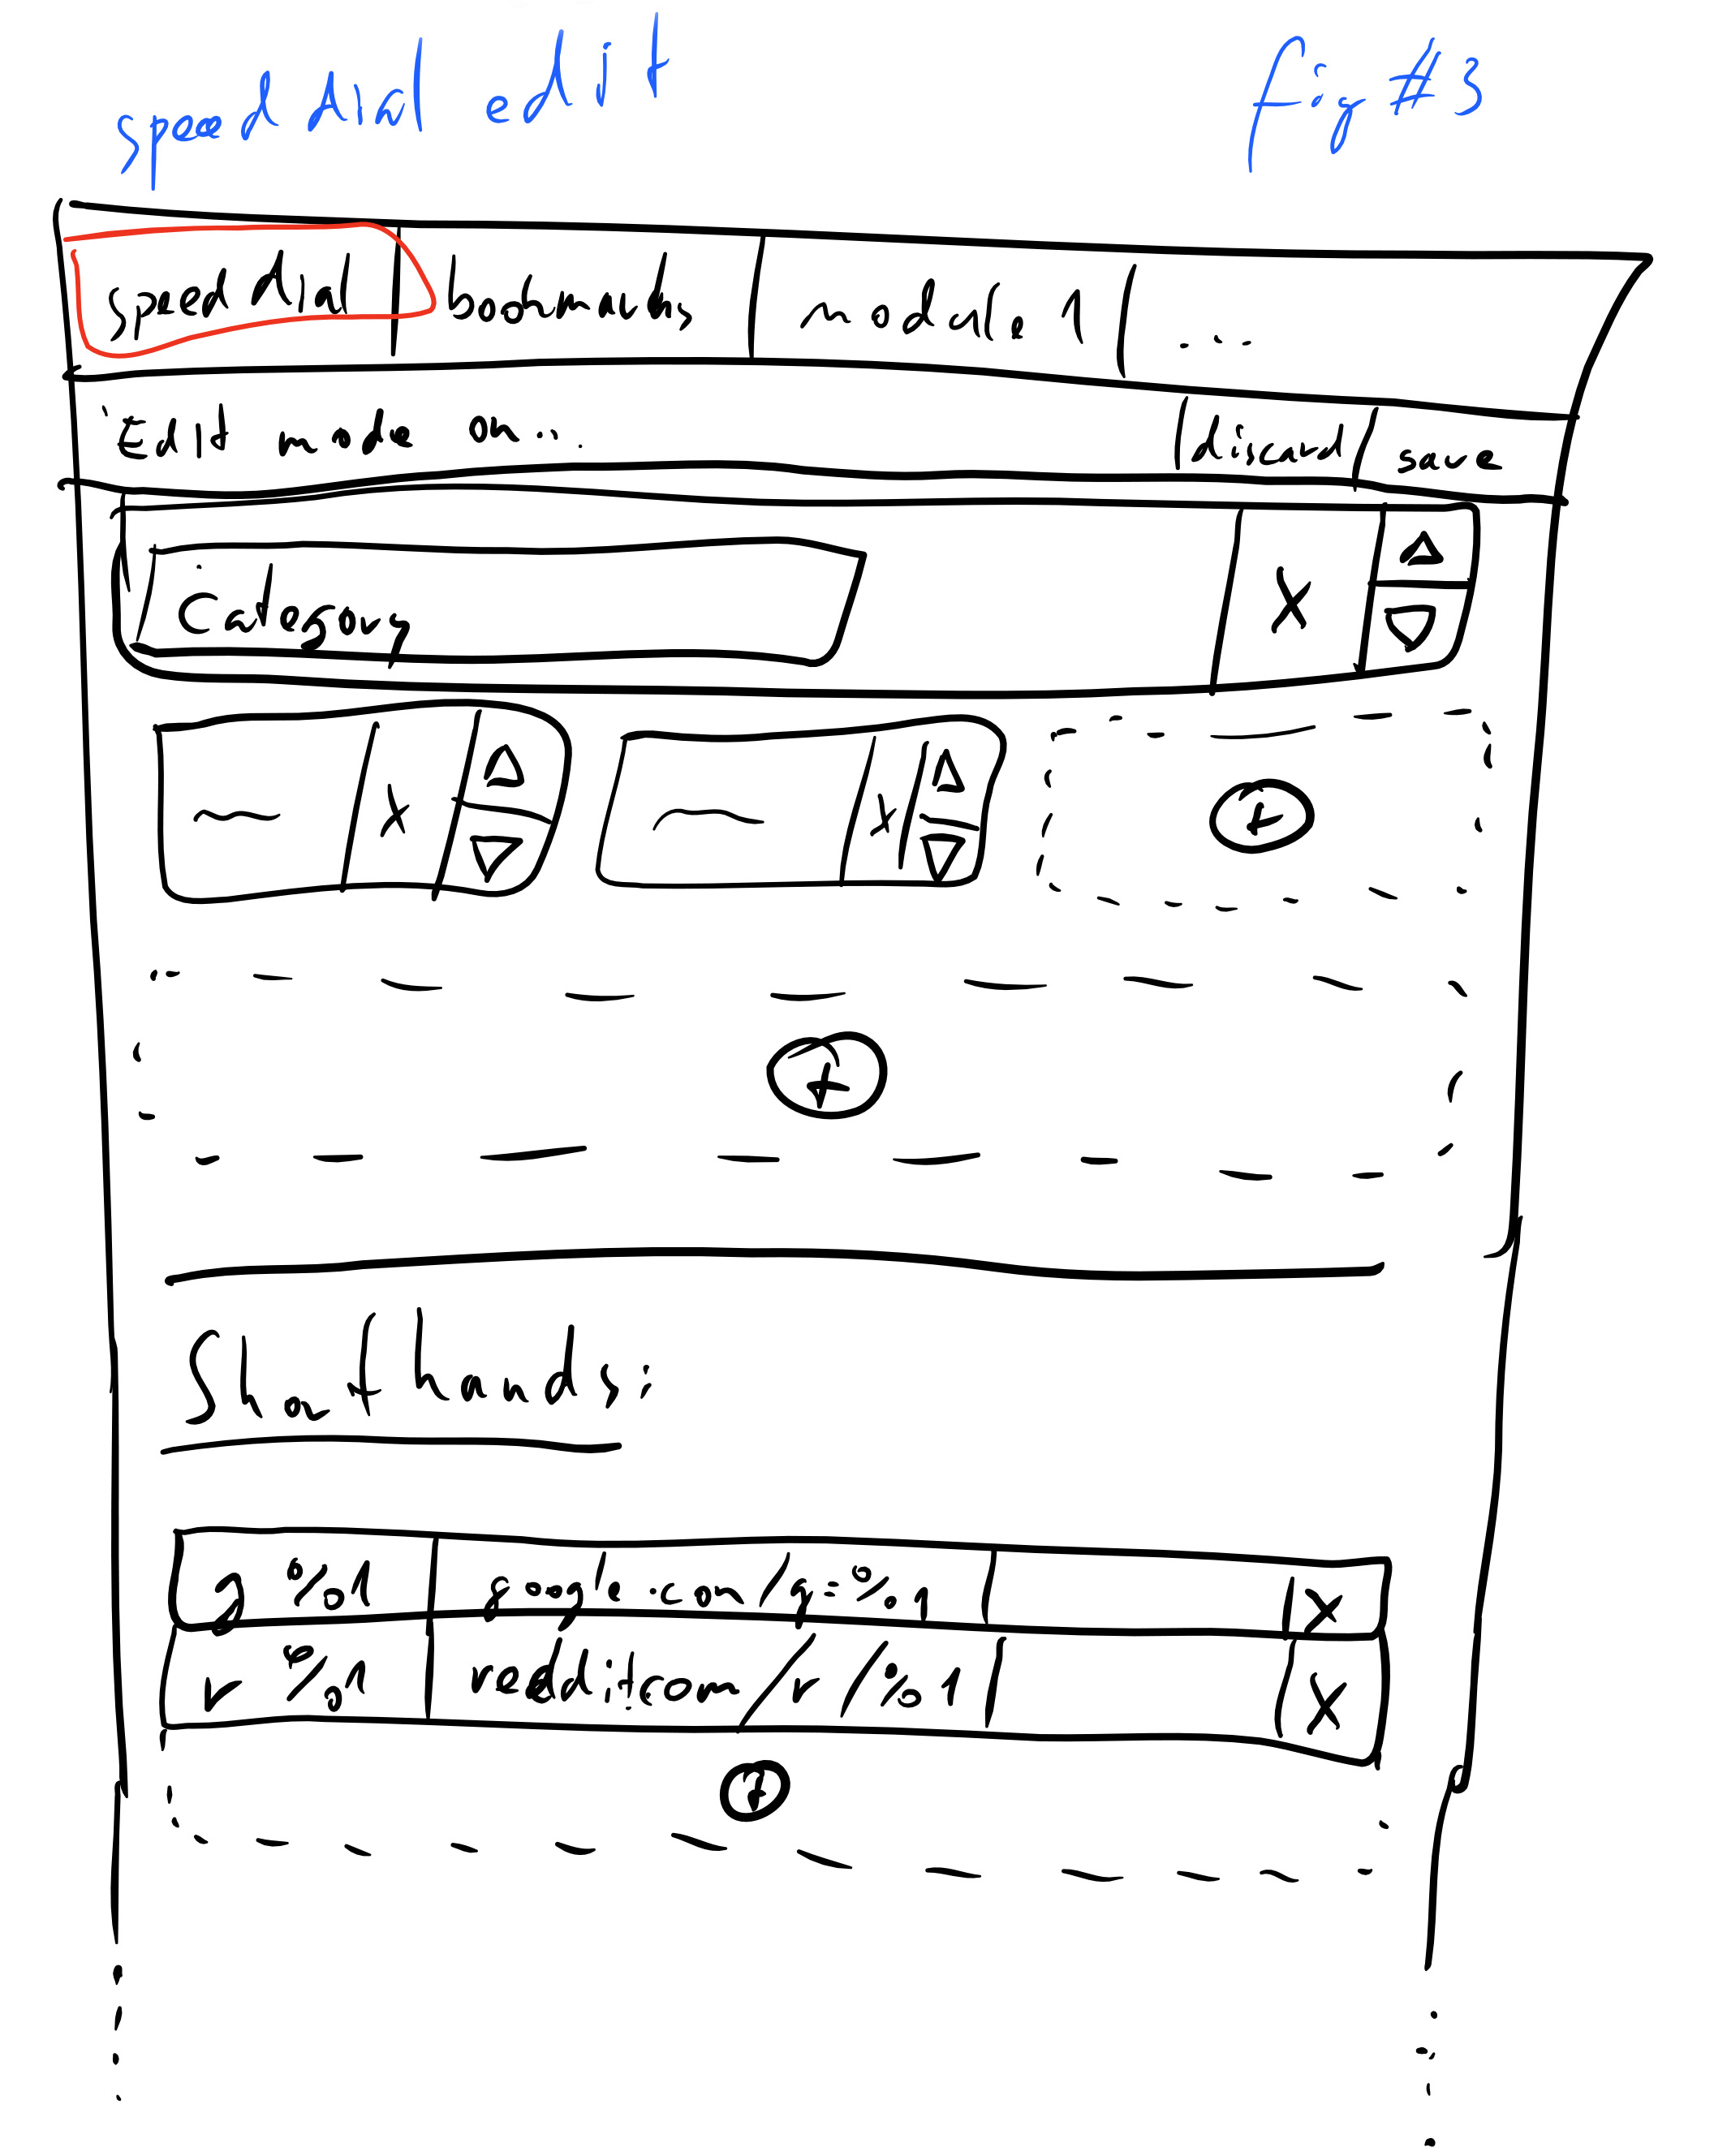 speed dial edit fig #3
speed dial bookmarks module 1 ...
Edit mode on... discard save
Category X
X X +
+
Shorthands:
g %1 google.com/q=%1 X
r %1 reddit.com/r/%1 X
+